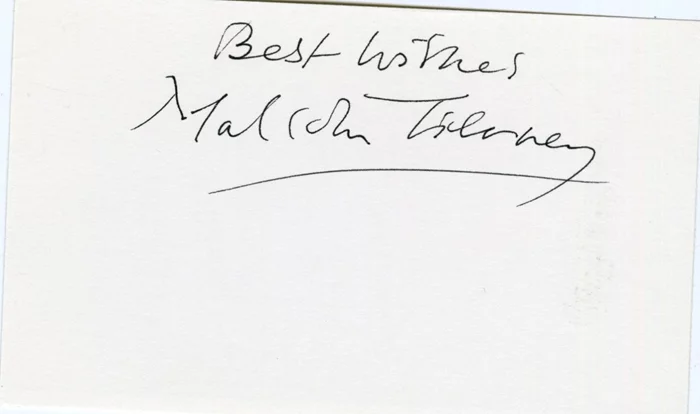 Best Wishes
Malcolm Tierney